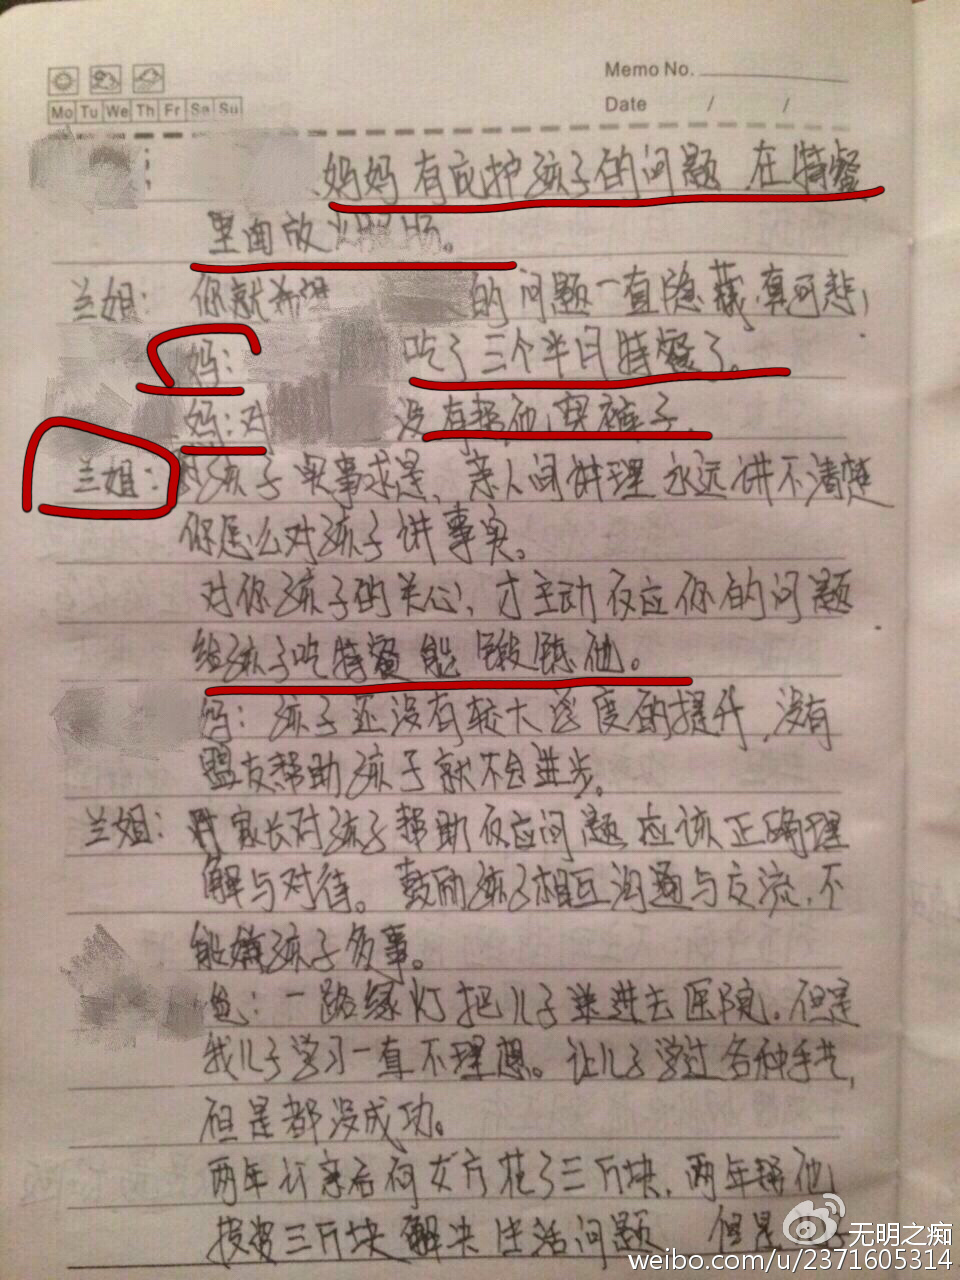 Memo No.
Mo Tu We Th Fr Sa Su
Date / /
妈妈有应护孩子的问题,在特餐
里面放
兰姐: 你就 的问题一直隐藏,真可悲,
妈: 吃了三个半月特餐了。
妈:对 没有帮他买裤子.
兰姐: 对孩子实事求是,亲人间讲理永远讲不清楚
你怎么对孩子讲事实。
对你孩子的关心,才主动反应你的问题
给孩子吃特餐能锻练他。
妈:孩子还没有较大进度的提升,没有
盟友帮助孩子就不会进步。
兰姐: 对家长对孩子帮助反应问题,应该正确理
解与对待。鼓励孩子相互沟通与交流,不
能嫌孩子多事。
爸:一路绿灯把儿子送进去医院。但是
我儿子学习一直不理想。让儿子学过各种手艺,
但是都没成功。
两年 亲后 女方花了三万块,两年 他
投资三万块解决生活问题 但是
无明之痴
weibo.com/u/2371605314